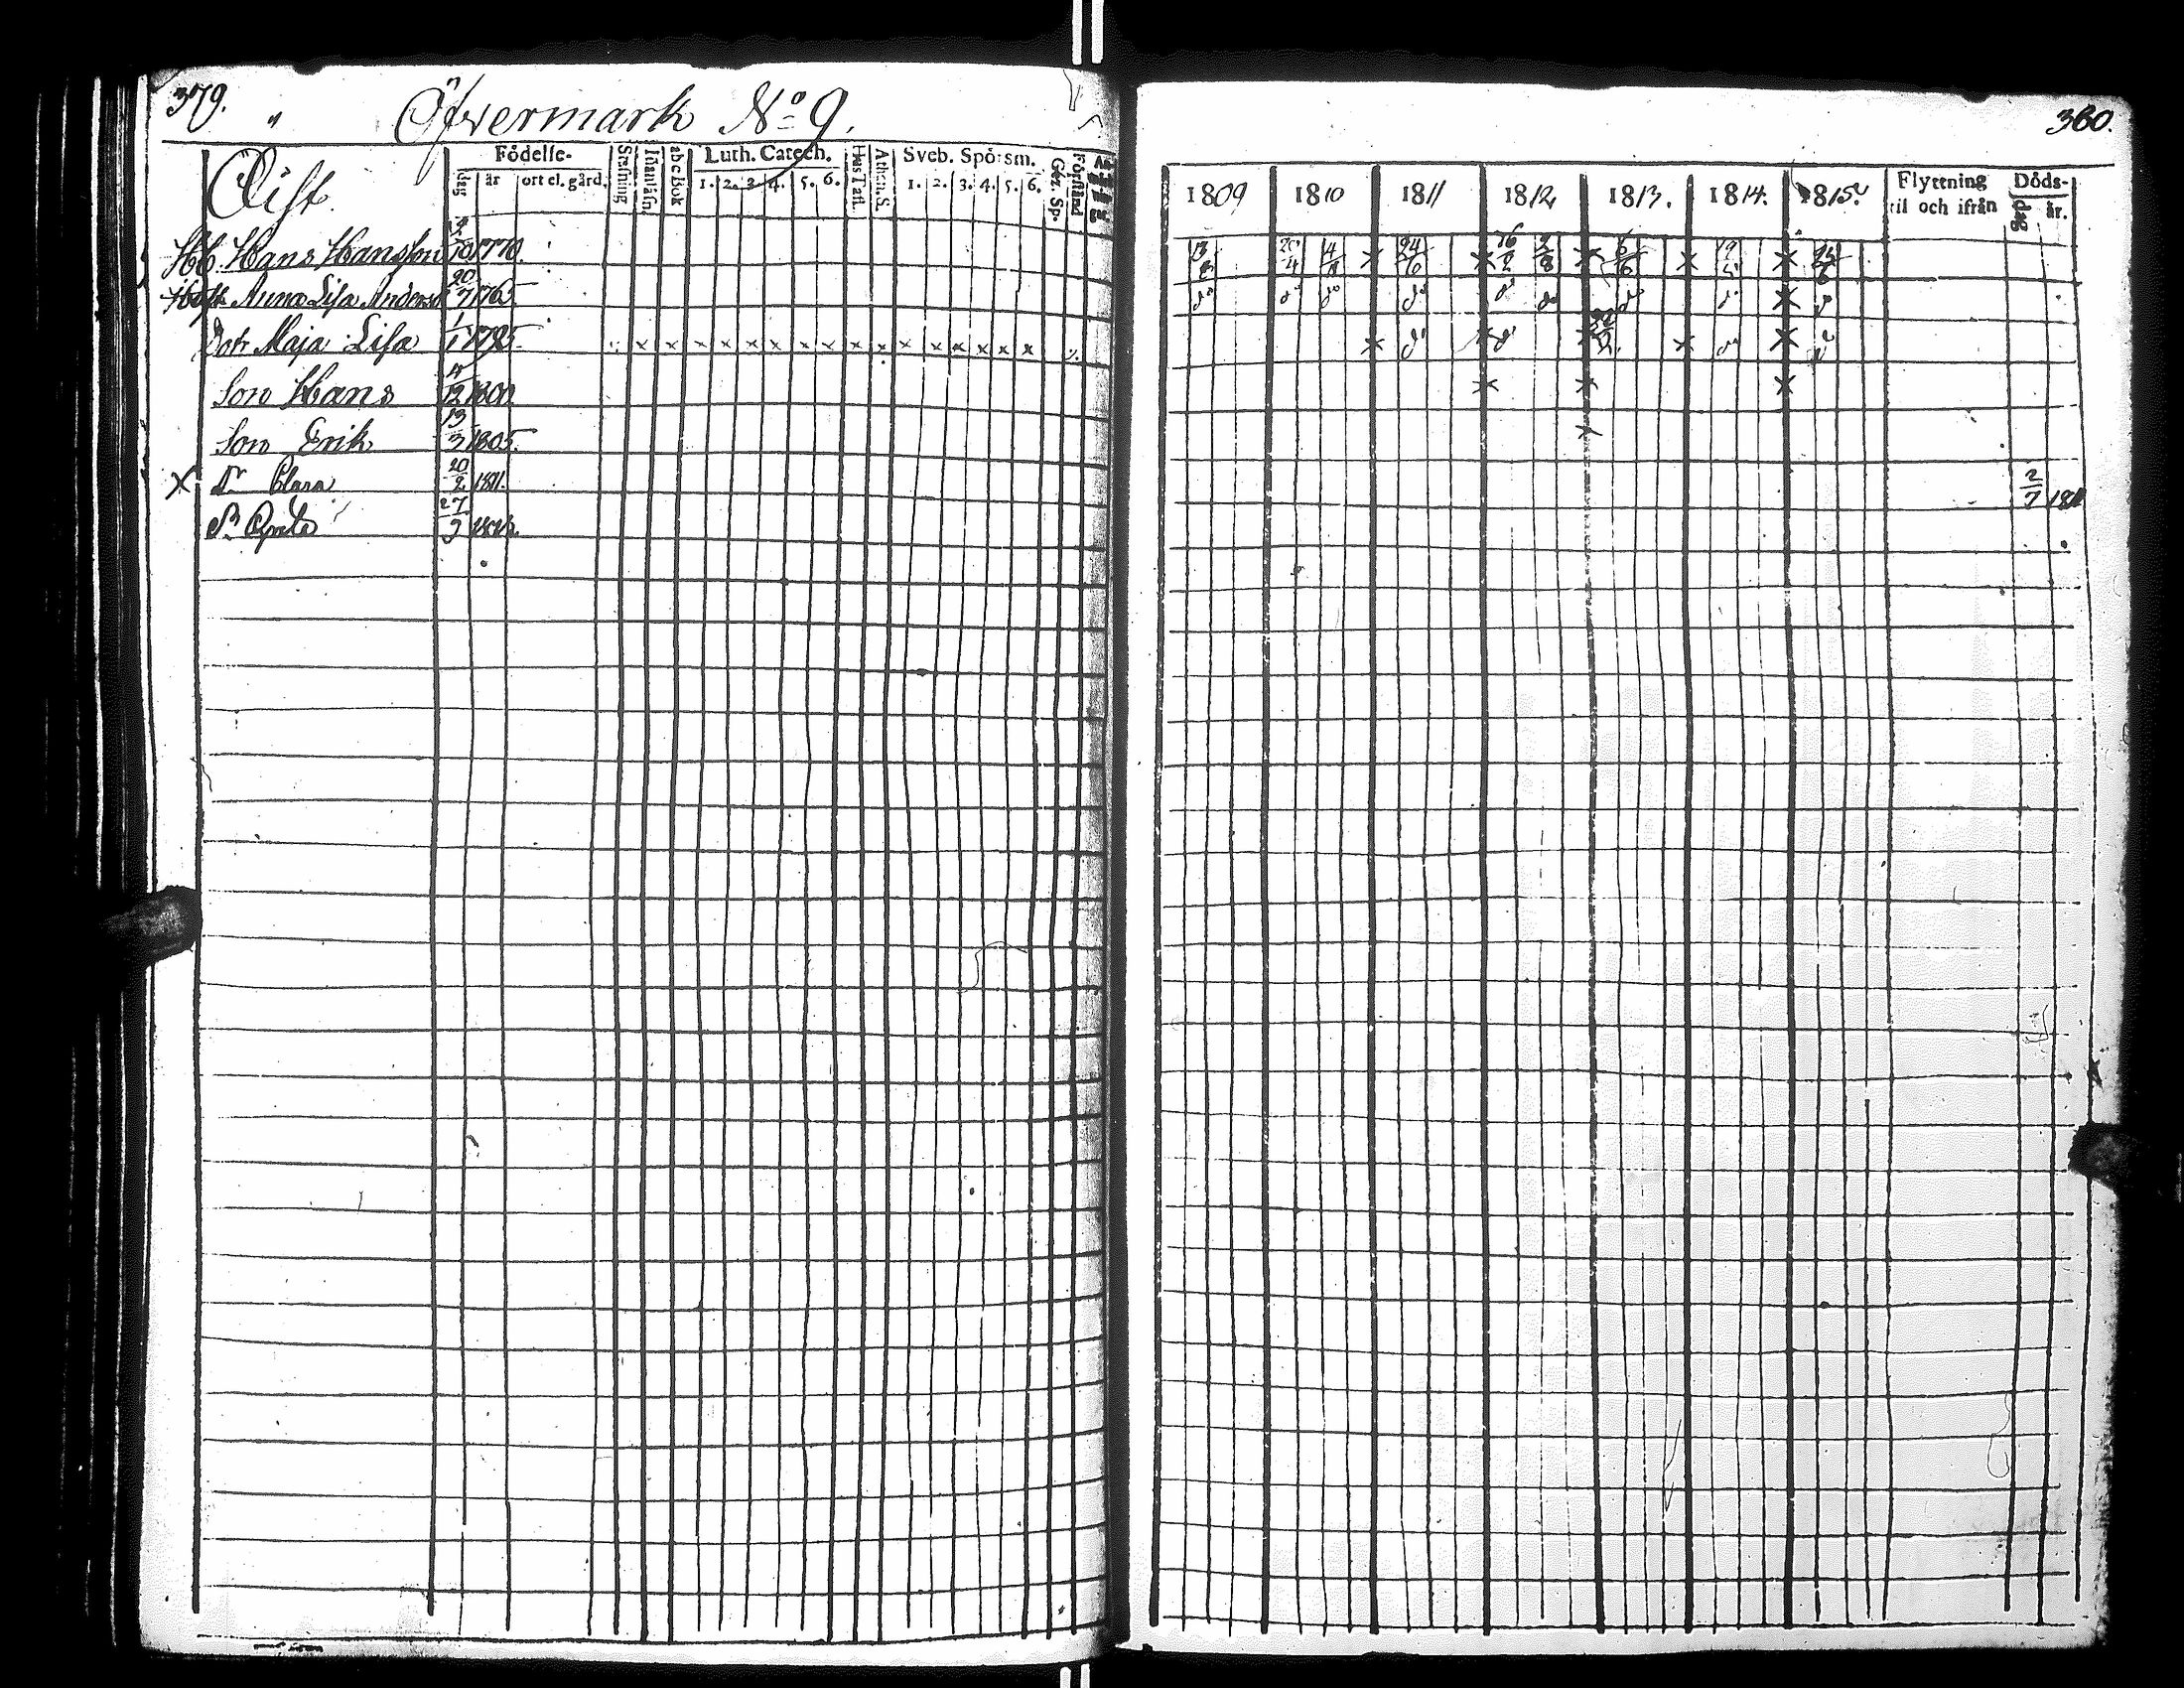 379.
Öfvermark No 9.
Födelse-
dag år ort el. gård.
Stafning
Innanläsn.
abc Bok
Luth. Catech.
1. 2. 3. 4. 5. 6.
Hus Tafl.
Athan. S.
Sveb. Spörsm.
1. 2. 3. 4. 5. 6.
Gez. Sp.
Förstånd
Öist.
Hb. Hans Hansson 10 1770.
Hust. Anna Lisa Anders 20/7 1765
Dotr Maja Lisa 1/1 1795 x x x x x x x x x x x x x x x x
Son Hans 12 1800
Son Erik 13/3 1805.
X Dr Clara 20/2 1811.
Dr Greta 27/9
360.
1809 1810 1811 1812 1813. 1814. 1815.
Flyttning
til och ifrån
Döds-
dag år.
4/8 x 24/6 x 2/8 x 6/6 x x 25/6
do do do do do do do do x do
x do x do x x do x do
x x x
x
2/7 1811